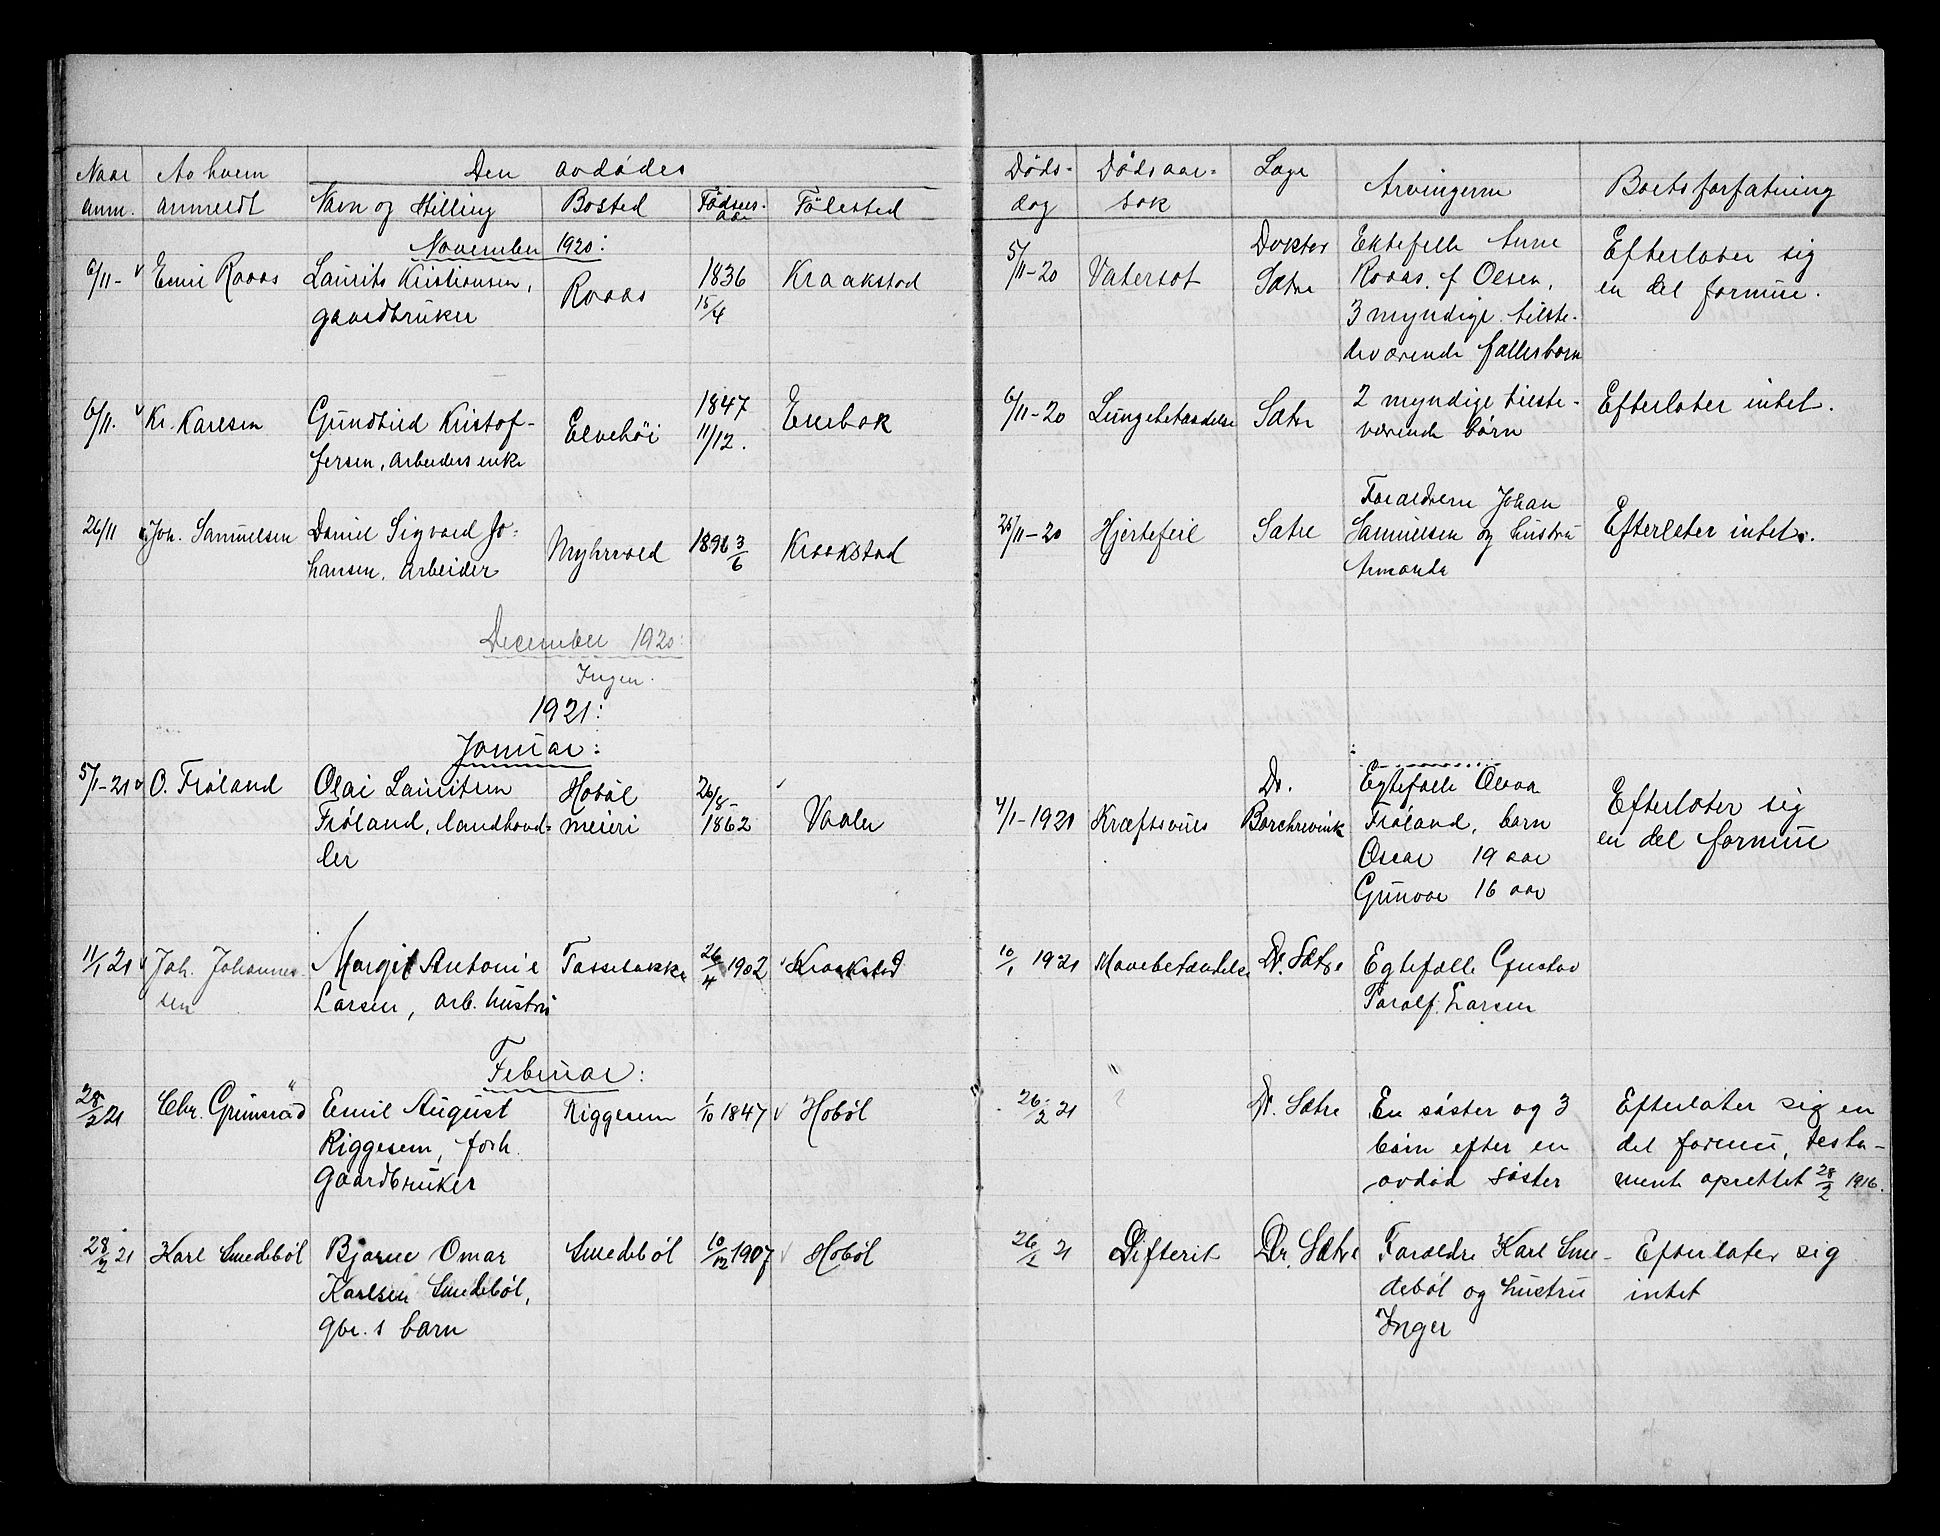 Naar
anm.
Av hvem
anmeldt
Den avdødes
Navn og stilling
Bosted
Fødsels-
aar
Fødested
Døds-
dag
Dødsaar-
sak
Læge
Arvingerne
Boets forfatning
November 1920:
6/11-
Emil Raaas
Laurits Kristiansen,
gaardbruker
Raaas
1836
15/4
Kraakstad
5/11-20
Vatersot
Doktor
Sætre
Ektefelle Anne
Raaas, f Olsen,
3 myndige tilste-
deværende fællesbarn
Efterlater sig
en del formue.
6/11.
Kr. Karlsen
Gundhild Kristof-
fersen, arbeiders enke
Elvehöi
1847
11/12.
Enebak
6/11-20
Lungebetændelse
Sætre
2 myndige tilste-
værende børn
Efterlater intet.
26/11
Joh. Samuelsen
Daniel Sigvard Jo-
hansen, arbeider
Myhrvold
1896 3/6
Kraakstad
25/11-20
Hjertefeil
Sætre
Forældrene Johan
Samuelsen og hustru
Amanda
Efterlater intet.
December 1920:
Ingen.
1921:
Januar:
5/1-21
O. Frøland
Olai Lauritsen
Frøland, landhand-
ler
Hobøl
meieri
26/8-
1862
Vaaler
4/1-1921
Kræftsvuls
Dr.
Borchrevink
Egtefælle Olava
Frøland, barn
Oscar 19 aar
Gunvor 16 aar
Efterlater sig
en del formue
11/1 21
Joh. Johannes-
sen
Margit Antonie
Larsen, arb. hustru
Tassebakke
26/4 1902
Kraakstad
10/1 1921
Mavebetændelse
Dr. Sætre
Egtefælle Gustav
Toralf Larsen
Februar:
28/2 21
Chr. Grimsrud
Emil August
Riggesem, forh.
Gaardbruker
Riggesem
1/10 1847
Hobøl
26/2 21
?
Dr. Sætre
En søster og 3
børn efter en
avdød søster
Efterlater sig en
del formue, testa-
ment oprettet 28/2 1916.
28/2 21
Karl Smedebøl
Bjarne Omar
Karlsen Smedebøl,
gbr.s barn
Smedebøl
10/12 1907
Hobøl
26/2 21
Difterit
Dr. Sætre
Foreldre Karl Sme-
debøl og hustru
Inger
Efterlater sig
intet